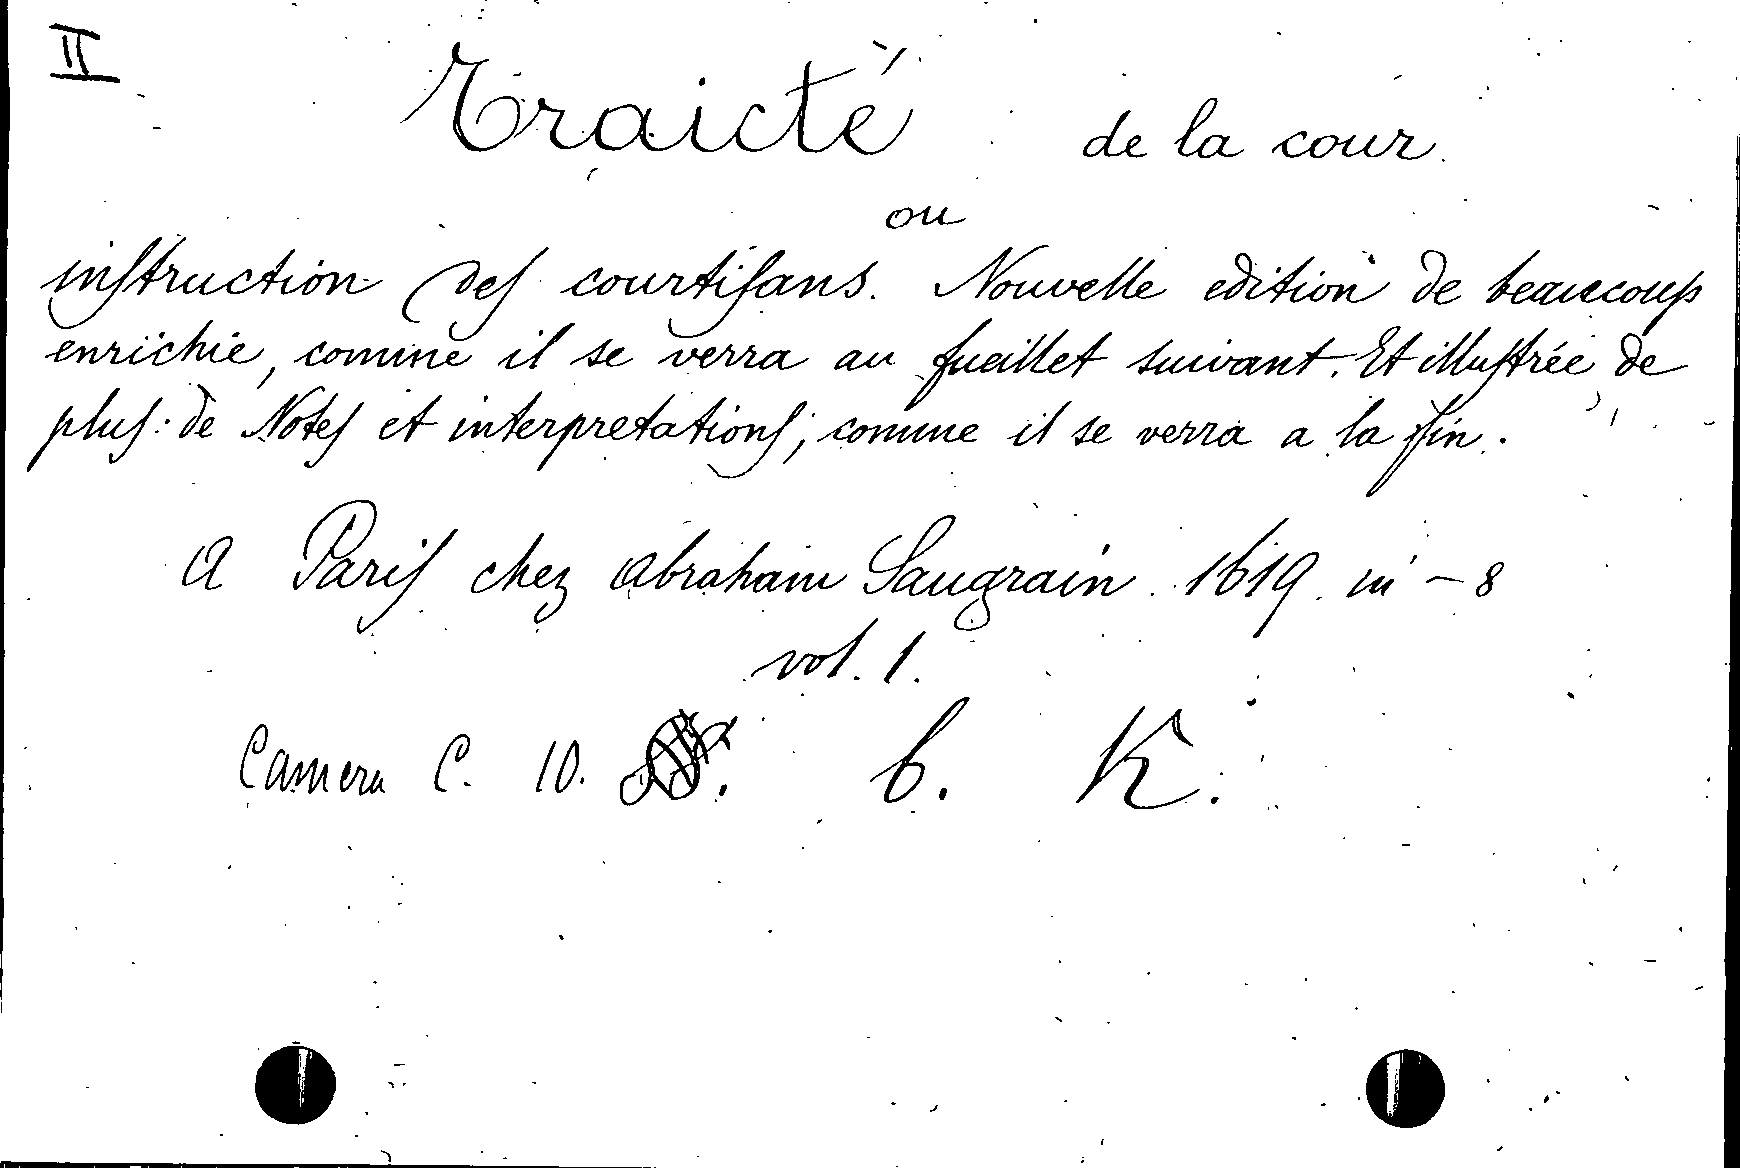 II
Traicté de la cour
ou
inſtruction deſ courtiſans. Nouvelle edition de beaucoup
enrichie, comme il se verra au fueillet suivant. Et illuſtrée de
pluſ: de Noteſ et interpretationſ; comme il se verra a la fin.
A Pariſ chez Abraham Saugrain 1619. in-8
vol. 1.
Camera C. 10. b. K.